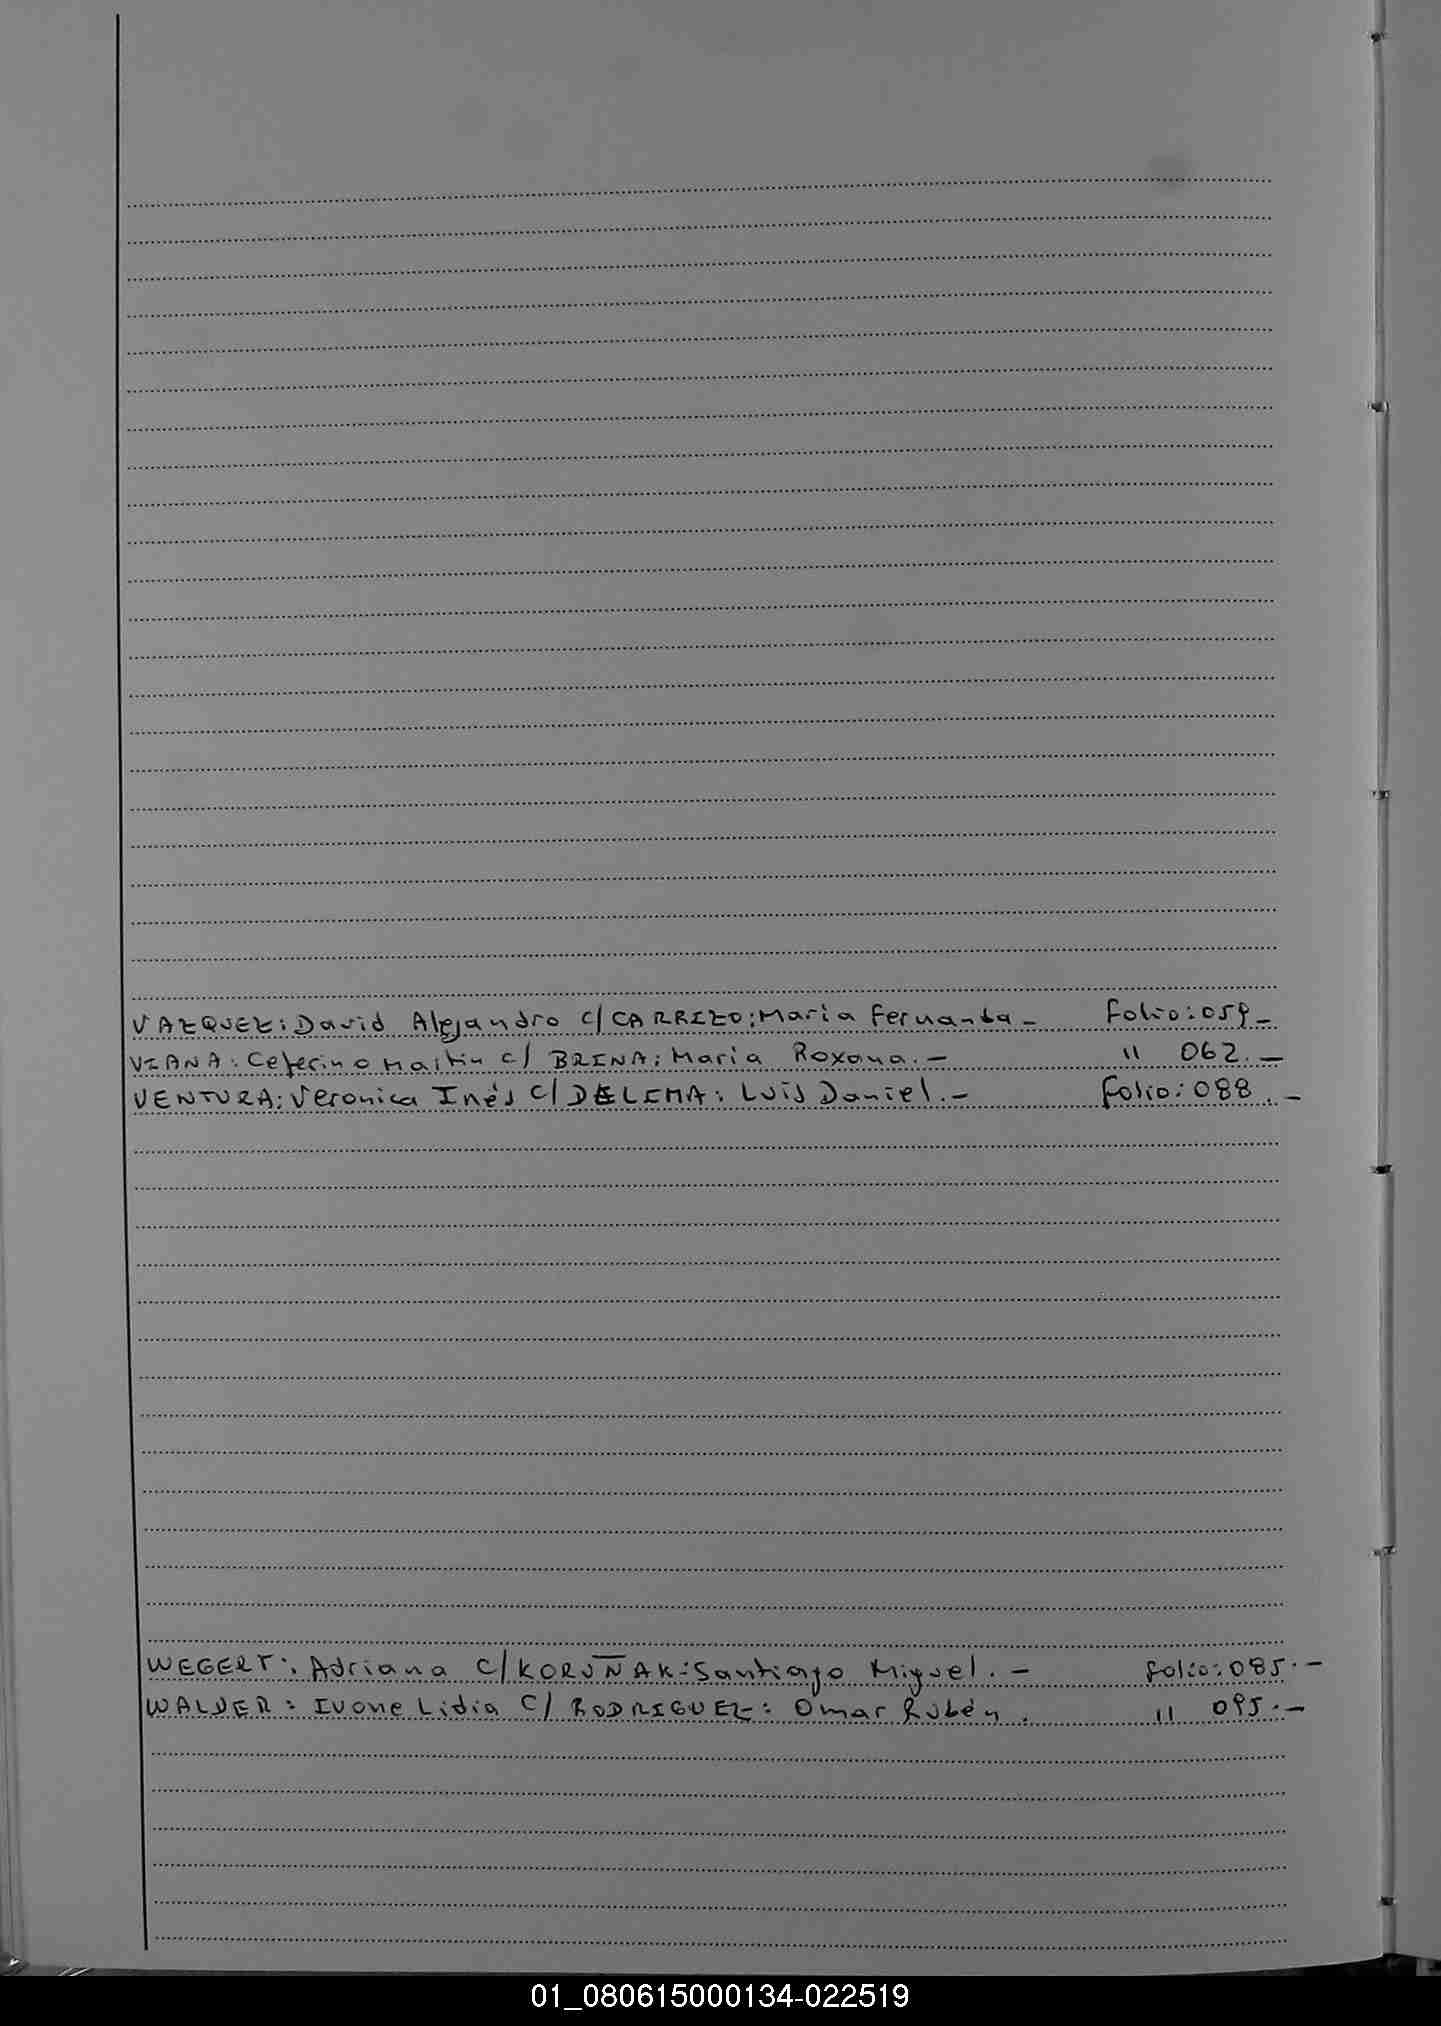 VAZQUEZ: David Alejandro c/ CARRIZO: María Fernanda - folio: 059 -
VIANA: Ceferino Martin c/ BRINA: María Roxana. - " 062. -
VENTURA: Veronica Inés c/ DELIMA: Luis Daniel. - folio: 088. -
WEGERT: Adriana c/ KORUÑAK: Santiago Miguel. - folio: 085. -
WALDER: Ivone Lidia c/ RODRIGUEZ: Omar Rubén. " 095. -
01_080615000134-022519